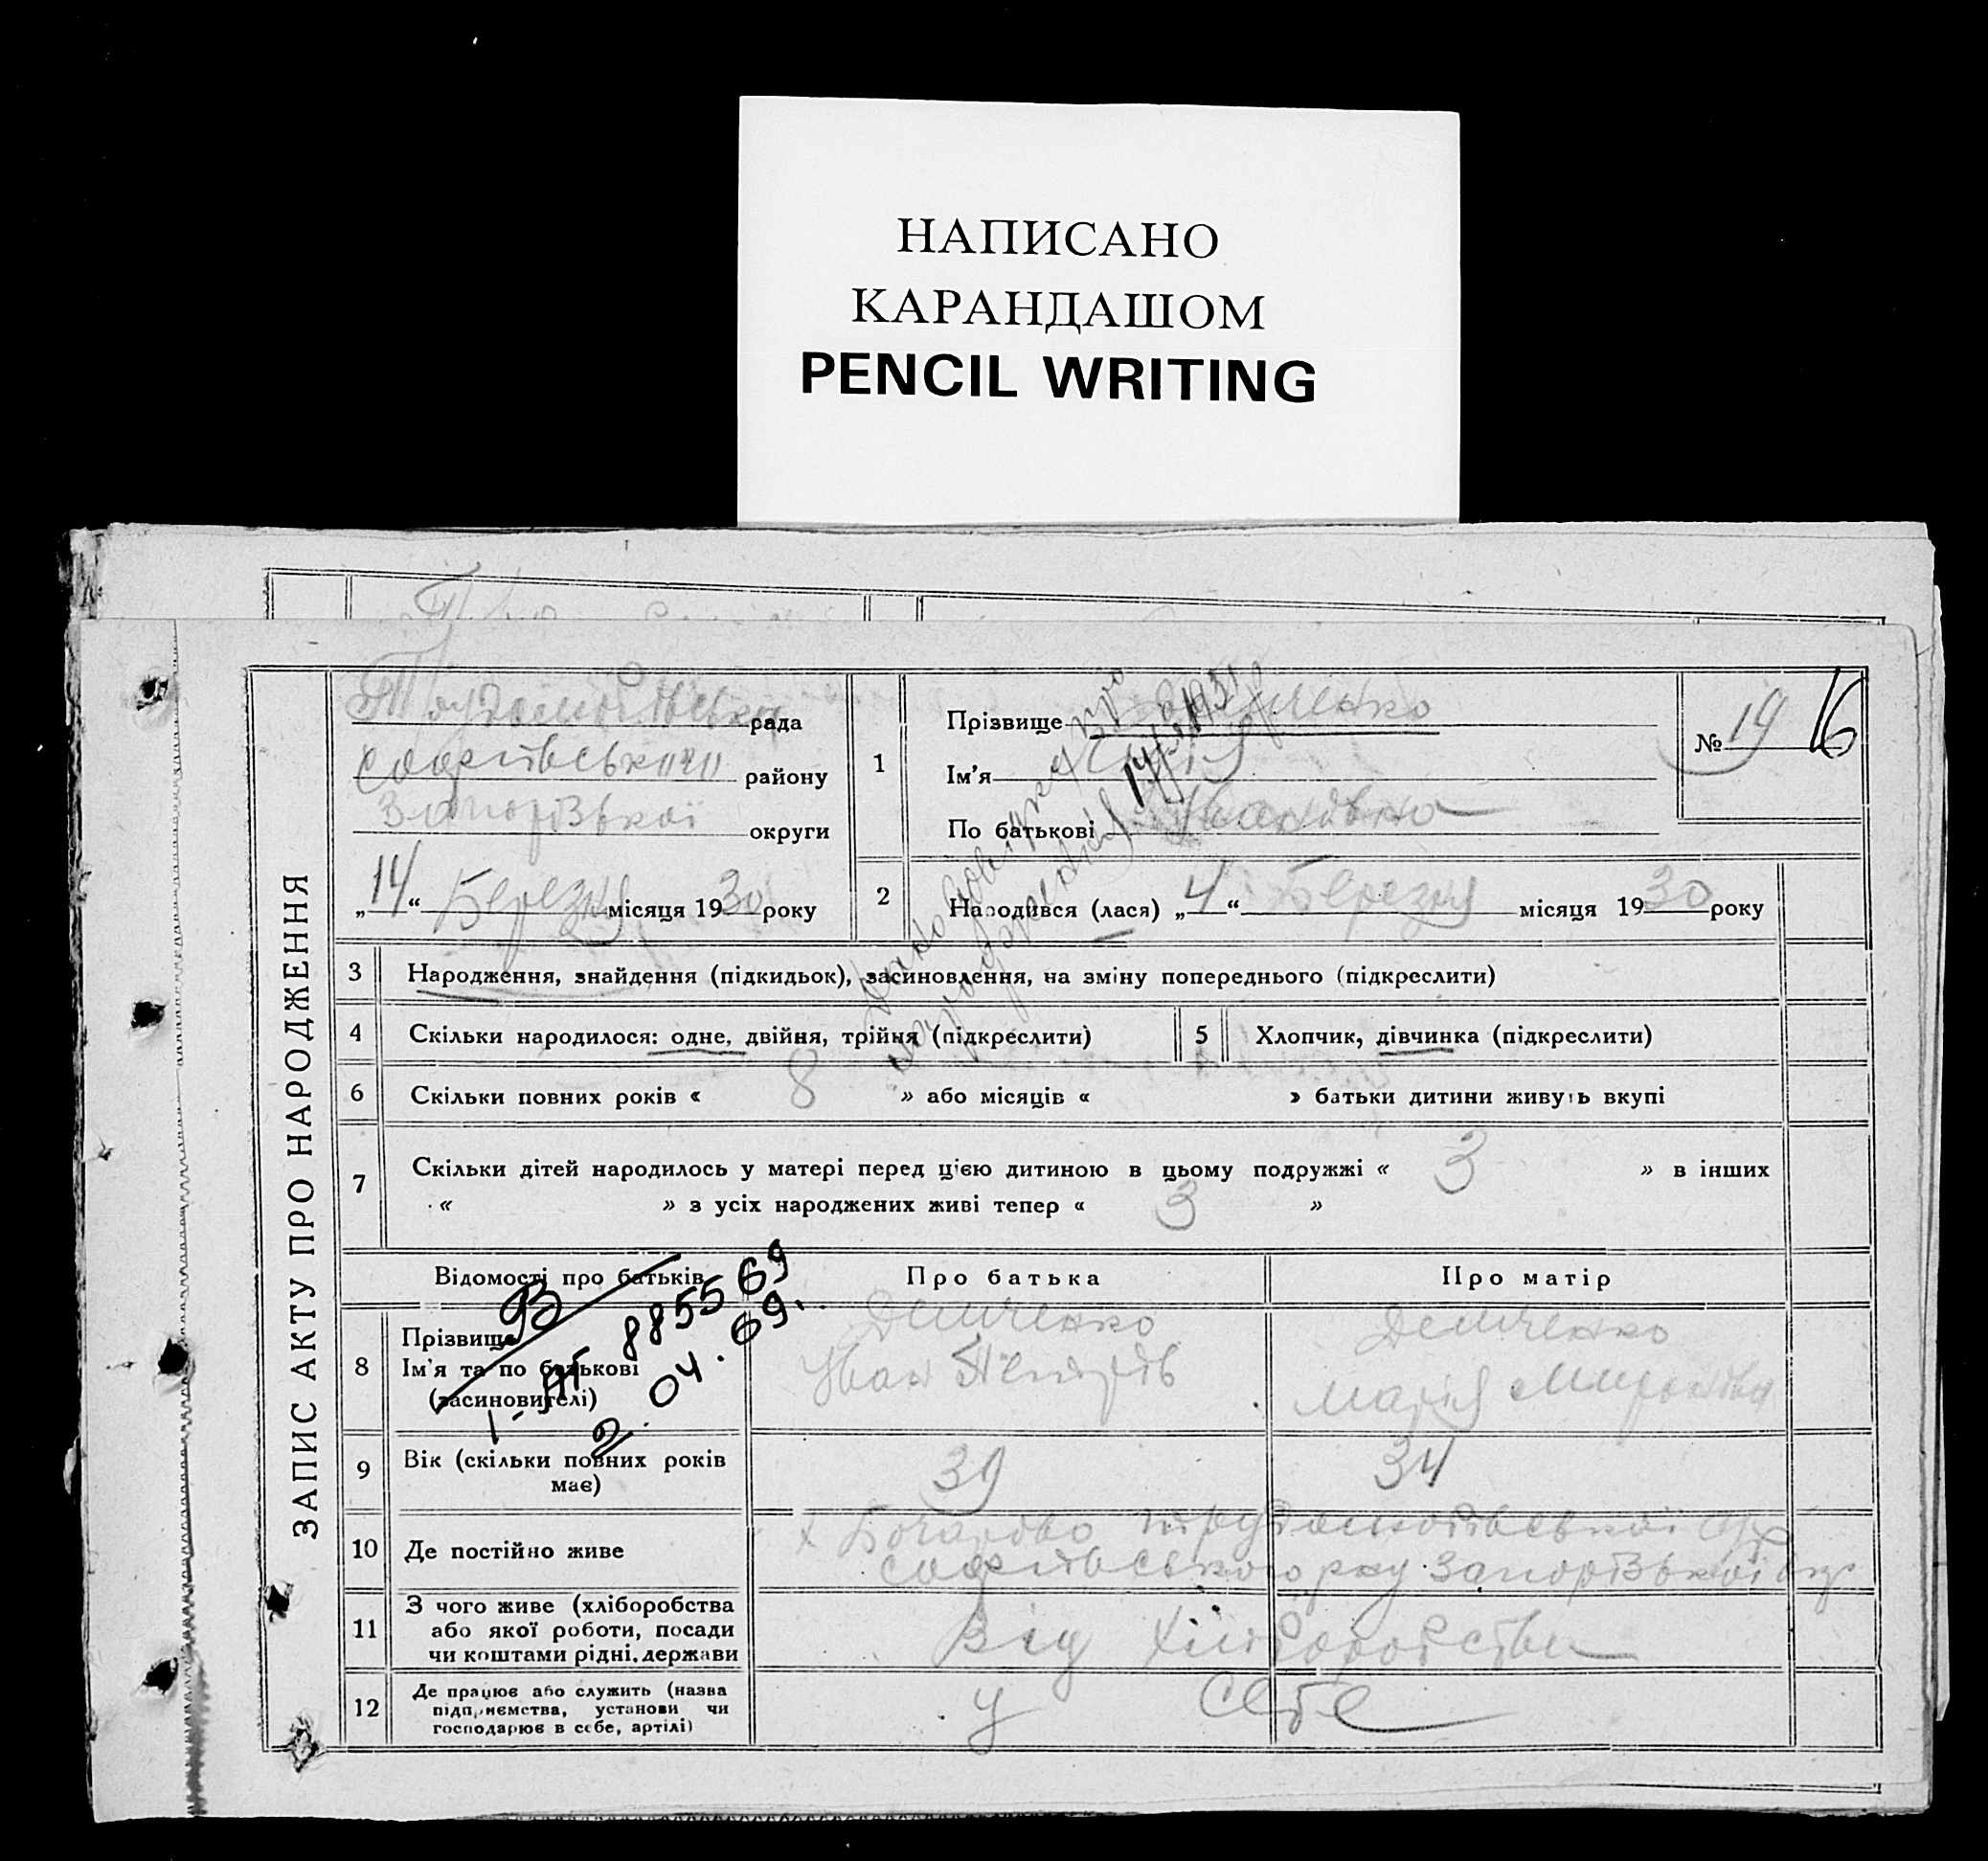 НАПИСАНО
КАРАНДАШОМ
PENCIL WRITING
ЗАПИС АКТУ ПРО НАРОДЖЕННЯ
рада
Софіївського району
Запорізької округи
„14“ Березня місяця 1930 року
1
Прізвище Демченко
Ім'я Марія
По батькові Іванівна
№ 19 16
2
Народився (лася) „4“ Березня місяця 1930 року
3 Народження, знайдення (підкидьок), засиновлення, на зміну попереднього (підкреслити)
4 Скільки народилося: одне, двійня, трійня (підкреслити)
5 Хлопчик, дівчинка (підкреслити)
6 Скільки повних років « 8 » або місяців « » батьки дитини живуть вкупі
7 Скільки дітей народилось у матері перед цією дитиною в цьому подружжі « 3 » в інших
« » з усіх народжених живі тепер « 3 »
Відомості про батьків
Про батька
Про матір
8
Прізвище
Ім'я та по батькові
(засиновителі)
885569
2.04.69.
Демченко
Іван Петрів
Демченко
Марія Миронівна
9 Вік (скільки повних років
має)
39
34
10 Де постійно живе
х Бочарово
Софіївського р-ну Запорізької окр
11 З чого живе (хліборобства
або якої роботи, посади
чи коштами рідні, держави
Від Хліборобства
12 Де працює або служить (назва
підприємства, установи чи
господарює в себе, артілі)
У себе